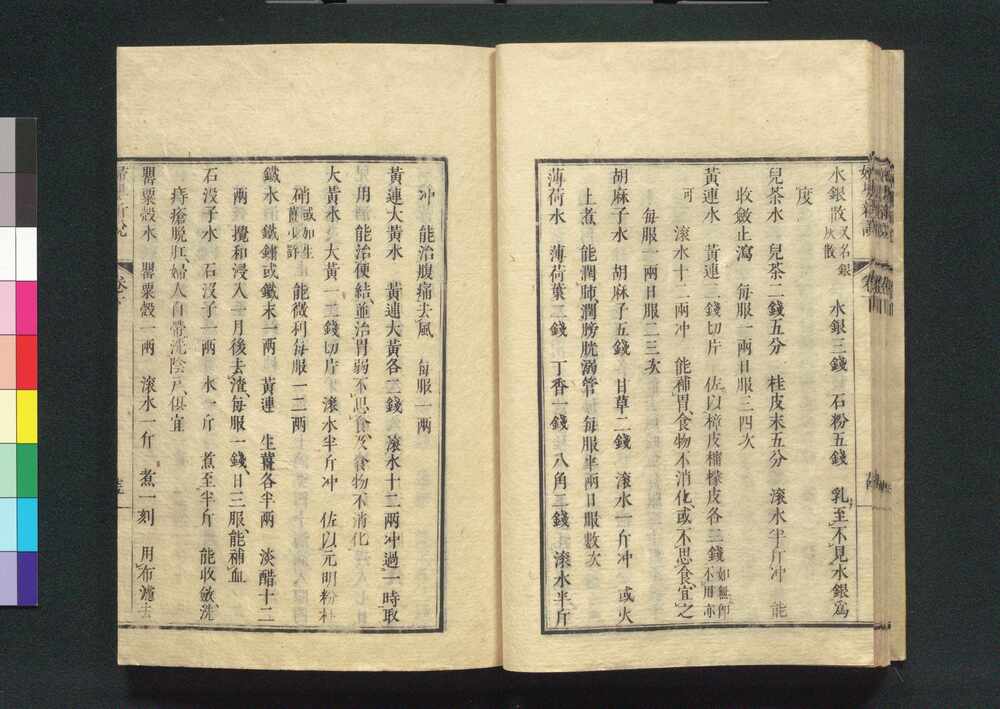 水銀散 又名銀灰散 水銀三錢 石粉五錢 乳至不見水銀為
度
兒茶水 兒茶二錢五分 桂皮末五分 滾水半斤冲 能
收斂止瀉 每服一兩日服三四次
黃連水 黃連三錢切片 佐以樟皮檸檬皮各三錢 如無即不用亦
可 滾水十二兩冲 能補胃、食物不消化、或不思食宜之
每服一兩日服二三次
胡麻子水 胡麻子五錢 甘草二錢 滾水一斤冲 或火
上煮 能潤肺潤膀胱溺管 每服半兩日服數次
薄荷水 薄荷葉二錢 丁香一錢 八角三錢 滾水半斤
冲 能治腹痛去風 每服一兩
黃連大黃水 黃連大黃各三錢 滾水十二兩冲過一時取
用 能治便結、並治胃弱不思食、及食物不消化
大黃水 大黃一二錢切片 滾水半斤冲 佐以元明粉朴
硝 或如生薑少許 能微利每服一二兩
鐵水 鐵鏽或鐵末一兩 黃連 生薑各半兩 淡醋十二
兩 攪和浸入一月後去渣、每服一錢、日三服、能補血
石没子水 石沒子一兩 水一斤 煮至半斤 能收斂洗
痔瘡脫肛婦人白帶洗陰戶俱宜
罌粟殼水 罌粟殼一兩 滾水一斤 煮一刻 用布濾去